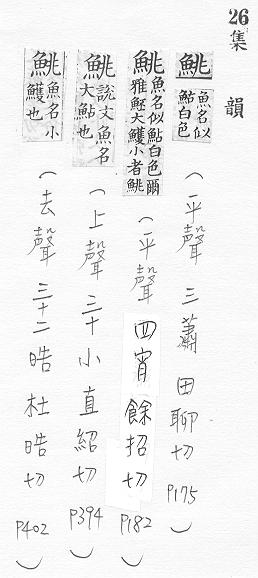 26 集 韻
鮡 魚名似鮎白色 (平聲 三蕭 田聊切 P175)
鮡 魚名似鮎白色爾雅魾大鱯小者鮡 (平聲 四宵 餘招切 P182)
鮡 說文魚名大鮎也 (上聲 三十小 直紹切 P394)
鮡 魚名小鱯也 (去聲 三十二晧 杜晧切 P402)